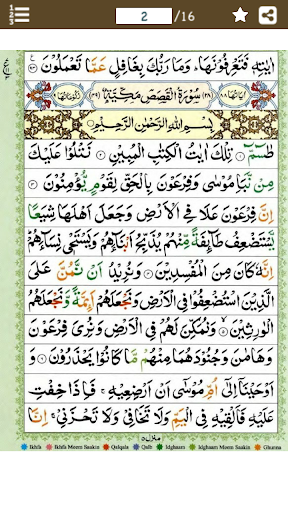 2 /16
اٰيٰتِهٖ فَتَعْرِفُوْنَهَا ؕ وَمَا رَبُّكَ بِغَافِلٍ عَمَّا تَعْمَلُوْنَ ۝
سُوْرَةُ الْقَصَصِ مَكِّيَّةٌ
بِسْمِ اللّٰهِ الرَّحْمٰنِ الرَّحِيْمِ
طٰسٓمّٓ ۝ تِلْكَ اٰيٰتُ الْكِتٰبِ الْمُبِيْنِ ۝ نَتْلُوْا عَلَيْكَ
مِنْ نَّبَاِ مُوْسٰى وَفِرْعَوْنَ بِالْحَقِّ لِقَوْمٍ يُّؤْمِنُوْنَ ۝
اِنَّ فِرْعَوْنَ عَلَا فِى الْاَرْضِ وَجَعَلَ اَهْلَهَا شِيَعًا
يَّسْتَضْعِفُ طَآئِفَةً مِّنْهُمْ يُذَبِّحُ اَبْنَآءَهُمْ وَيَسْتَحْىٖ نِسَآءَهُمْ ؕ
اِنَّهٗ كَانَ مِنَ الْمُفْسِدِيْنَ ۝ وَنُرِيْدُ اَنْ نَّمُنَّ عَلَى
الَّذِيْنَ اسْتُضْعِفُوْا فِى الْاَرْضِ وَنَجْعَلَهُمْ اَئِمَّةً وَّنَجْعَلَهُمُ
الْوٰرِثِيْنَ ۝ وَنُمَكِّنَ لَهُمْ فِى الْاَرْضِ وَنُرِىَ فِرْعَوْنَ
وَهَامٰنَ وَجُنُوْدَهُمَا مِنْهُمْ مَّا كَانُوْا يَحْذَرُوْنَ ۝ وَ
اَوْحَيْنَاۤ اِلٰٓى اُمِّ مُوْسٰٓى اَنْ اَرْضِعِيْهِ ۚ فَاِذَا خِفْتِ
عَلَيْهِ فَاَلْقِيْهِ فِى الْيَمِّ وَلَا تَخَافِىْ وَلَا تَحْزَنِىْ ۚ اِنَّا
منزل ٥
Ikhfa Ikhfa Meem Saakin Qalqala Qalb Idghaam Idghaam Meem Saakin Ghunna